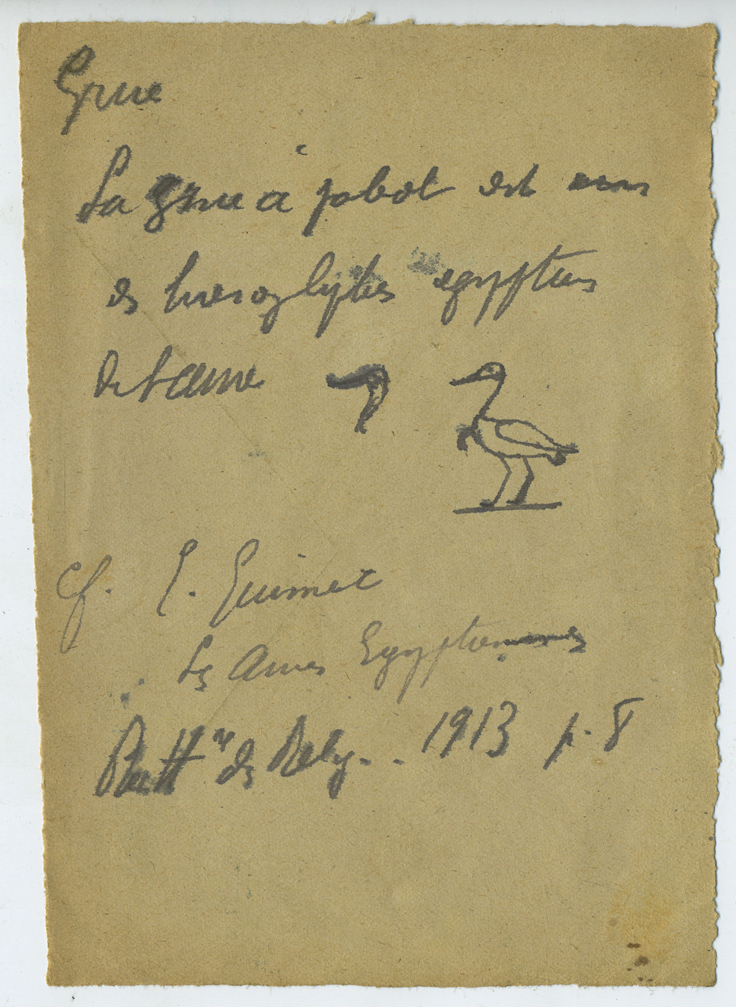 Grue
La grue à jabot est un
des hieroglyphes egyptiens
de l'ame
cf. E. Guimet
Les Ames Egyptiennes
des Relig.. 1913 p. 8